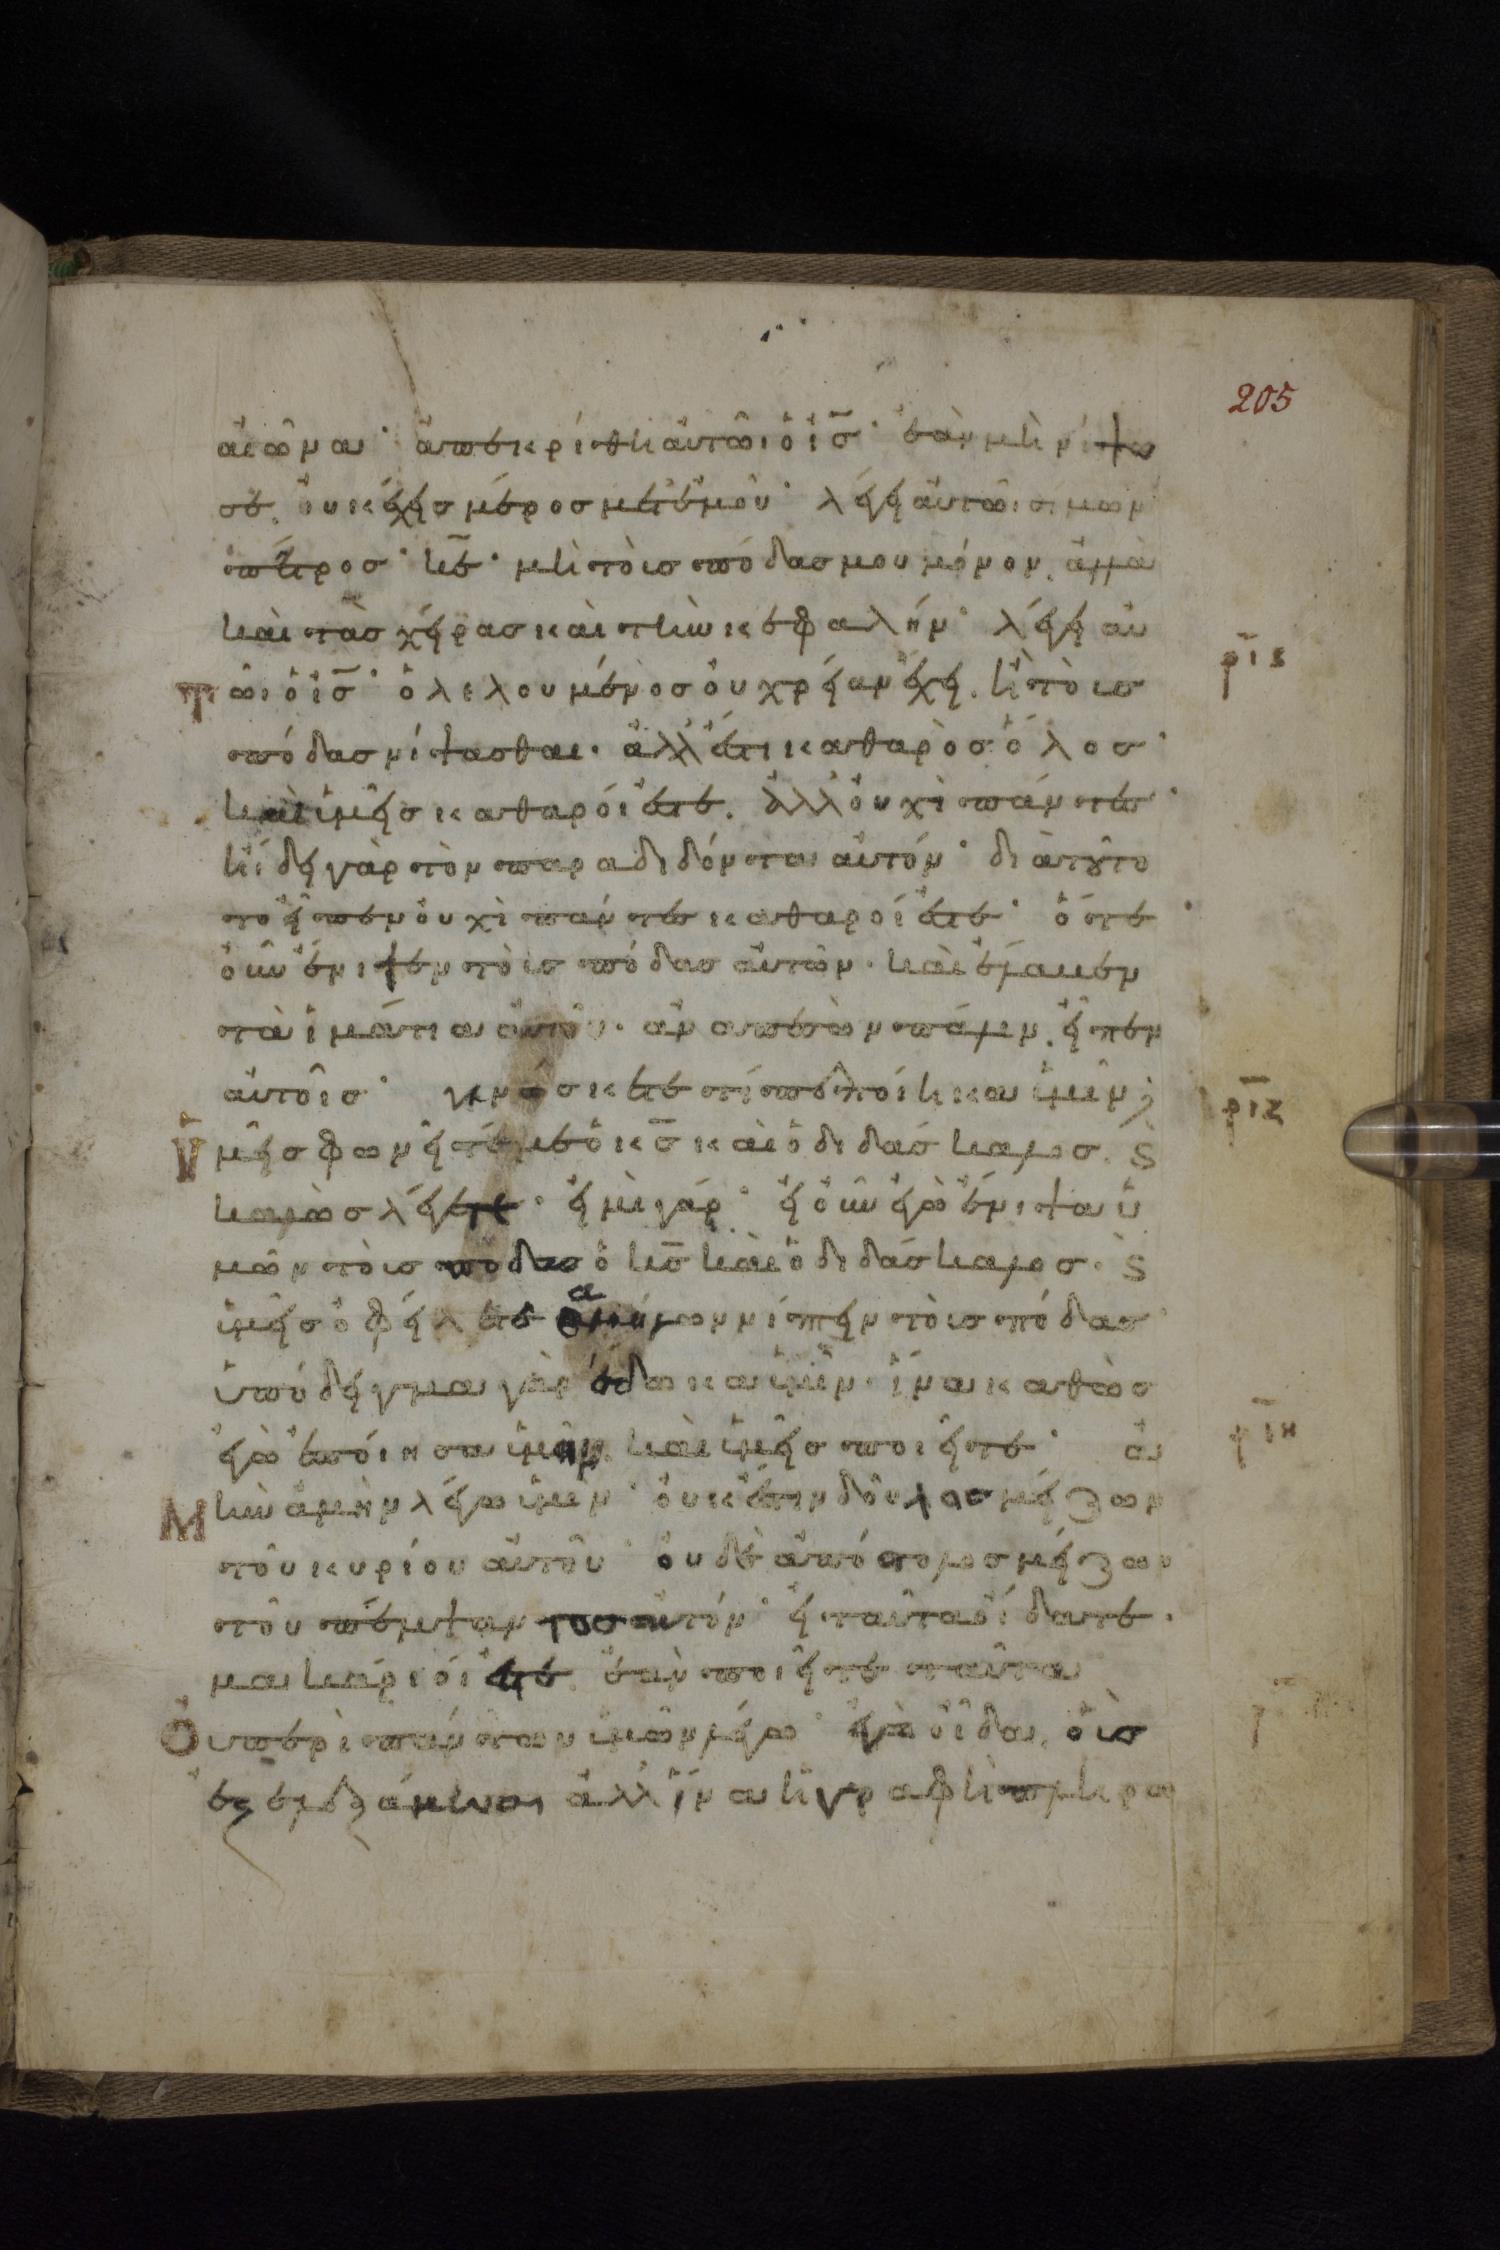 205
αἰῶνα· ἀπεκρίθη αὐτῶ ὁ ις̄· ἐὰν μὴ νίψω
σε, οὐκ ἔχεις μέρος μετ' ἐμοῦ· λέγει αὐτῶ σίμων
πέτρος· κε̄· μὴ τοὺς πόδας μου μόνον, ἀλλὰ
καὶ τὰς χεῖρας καὶ τὴν κεφαλήν· λέγει αὐ
τῶι ὁ ις̄· ὁ λελουμένος οὐ χρείαν ἔχει, ἢ τοὺς
ρ̄ις
πόδας νίψασθαι· ἀλλ' ἔστι καθαρὸς ὅλος·
καὶ ὑμεῖς καθαροί ἐστε, ἀλλ' οὐχὶ πάντες·
ἤδει γὰρ τὸν παραδιδόντα αὐτόν· διὰ τοῦτο
εἶπεν οὐχὶ πάντες καθαροί ἐστε· ὅτε
οὖν ἔνιψεν τοὺς πόδας αὐτῶν· καὶ ἔλαβεν
τὰ ἱμάτια αὐτοῦ· ἀναπεσὼν πάλιν, εἶπεν
αὐτοῖς· γινώσκετε τί πεποίηκα ὑμῖν;
ρ̄ιζ
Ὑμεῖς φωνεῖτέ με ὁ κς̄ καὶ ὁ διδάσκαλος. ϗ
καλῶς λέγετε· εἰμὶ γάρ· εἰ οὖν ἐγὼ ἔνιψα ὑ
μῶν τοὺς πόδας ὁ κς̄ καὶ ὁ διδάσκαλος· ϗ
ὑμεῖς ὀφείλετε ἀλλήλων νίπτειν τοὺς πόδας·
ὑπόδειγμα γὰρ ἔδωκα ὑμῖν· ἵνα καθὼς
ἐγὼ ἐποίησα ὑμῖν, καὶ ὑμεῖς ποιεῖτε· ἀ
ρ̄ιη
Μὴν ἀμὴν λέγω ὑμῖν· οὐκ ἔστιν δοῦλος μείζων
τοῦ κυρίου αὐτοῦ· οὐδὲ ἀπόστολος μείζων
τοῦ πέμψαντος αὐτόν· εἰ ταῦτα οἴδατε·
μακάριοί ἐστε ἐὰν ποιεῖτε ταῦτα
Ὀυ περὶ πάντων ὑμῶν λέγω· ἐγὼ οἶδα, οὓς
ἐξελεξάμην ἀλλ' ἵνα ἡ γραφὴ πληρω